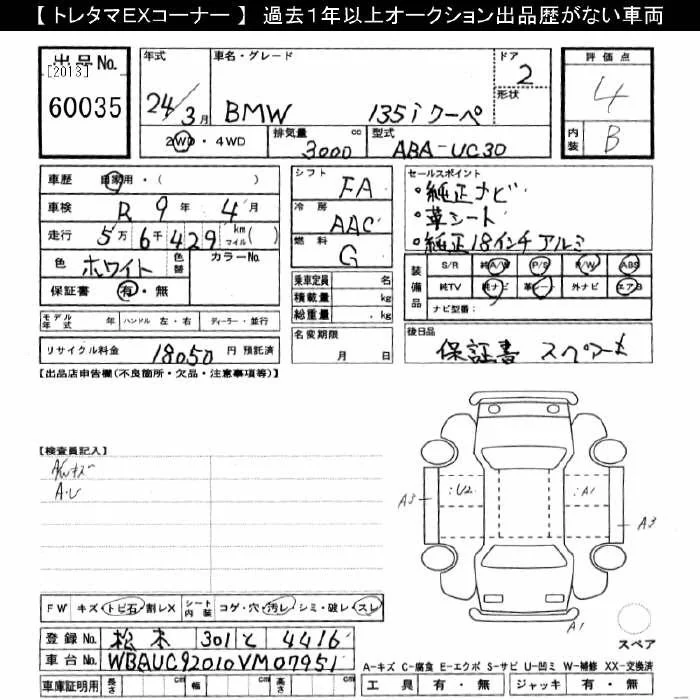 【 トレタマEXコーナー 】 過去1年以上オークション出品歴がない車両
出品No.
[2013]
60035
年式
24/3月
車名・グレード
BMW 135i クーペ
ドア
2
形状
評価点
4
内装
B
2WD・4WD
排気量
3000 cc
型式
ABA-UC30
車歴 自家用・( )
車検 R 9年 4月
走行 5万6千429 km マイル( )
色 ホワイト 色替 カラーNo.
保証書 有・無
シフト
FA
冷房
AAC
燃料
G
乗車定員 名
積載量 kg
総重量 . kg
セールスポイント
・純正ナビ
・革シート
・純正18インチアルミ
装備品
S/R 純A/W P/S P/W ABS
純TV 純ナビ 革シート 外ナビ エアB
ナビ型番:
モデル年式 年 ハンドル 左・右 ディーラー・並行
リサイクル料金 18050 円 預託済
名変期限
月 日
後日品
保証書 スペアーキー
【出品店申告欄(不良箇所・欠品・注意事項等)】
【検査員記入】
AWキズ
A.U
:U2
:A1
A3
A3
A1
スペア
FW キズ・トビ石・割レX シート内装 コゲ・穴・汚レ・シミ・破レ・スレ
登録No. 松本 301 と 4416
車台No. WBAUC92010VM07951
車庫証明用 長さ cm 幅 cm 高さ cm
A-キズ C-腐食 E-エクボ S-サビ U-凹ミ W-補修 XX-交換済
工具 有・無 ジャッキ 有・無